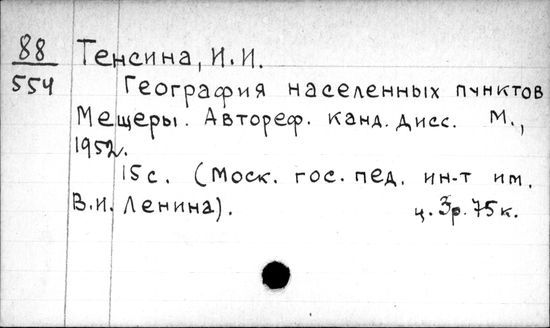 88
554
Тенсина, И.И.
География населенных пунктов
Мещеры. Автореф. канд. дисс. М.,
1952.
15 с. (Моск. гос. пед. ин-т им.
В.И. Ленина). ц. 3р. 75к.